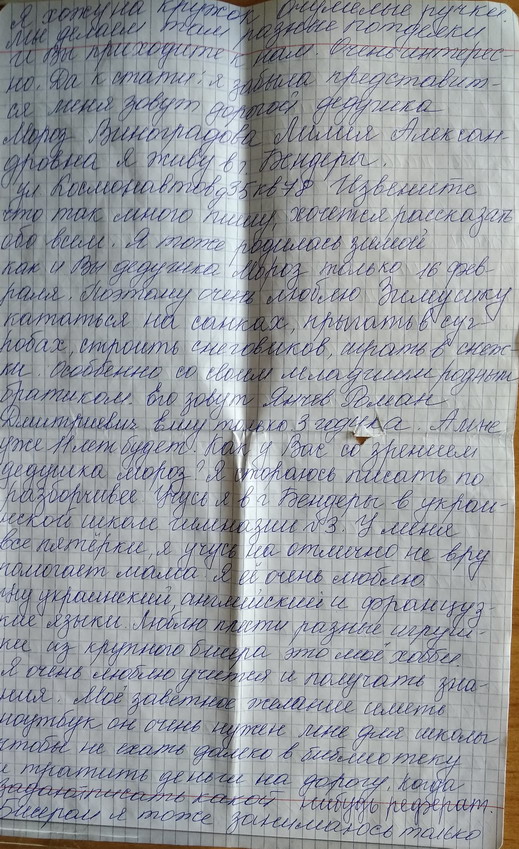 Я хожу на кружок очумелые ручки
Мы делаем там разные поделки
и Вы приходите к нам. Очень интерес-
но. Да к стати: я забыла представит-
ся меня зовут дорогой дедушка
Мороз Виноградова Лилия Алексан-
дровна я живу в г. Бендеры.
ул Космонавтов д35 кв 78 Извените
что так много пишу, хочется рассказать
обо всем. Я тоже родилась зимой
как и Вы дедушка Мороз только 16 фев-
раля. Поэтому очень люблю Зимушку
кататься на санках, прыгать в суг
робах, строить снеговиков, играть в снеж
ки. Особенно со своим младшим родным
братиком. Его зовут Янчев Роман
Дмитриевич Ему только 3 годика. А мне
уже 11 лет будет. Как у Вас со зрением
дедушка Мороз? Я стораюсь писать по
разборчивее Учусь я в г. Бендеры в украи-
нской школе гимназии №3. У меня
все пятёрки, я учусь на отлично не вру
помогает мама. Я её очень люблю
чу украинский, английский и француз-
кие языки. Люблю плести разные игруш-
ки из крупного бисера это моё хобби.
Я очень люблю учится и получать зна-
ния. Моё заветное желание иметь
ноутбук он очень нужен мне для школы
чтобы не ехать далеко в библиотеку
и тратить деньги на дорогу, когда
писать какой пишущь реферат.
Бисером я тоже занимаюсь только